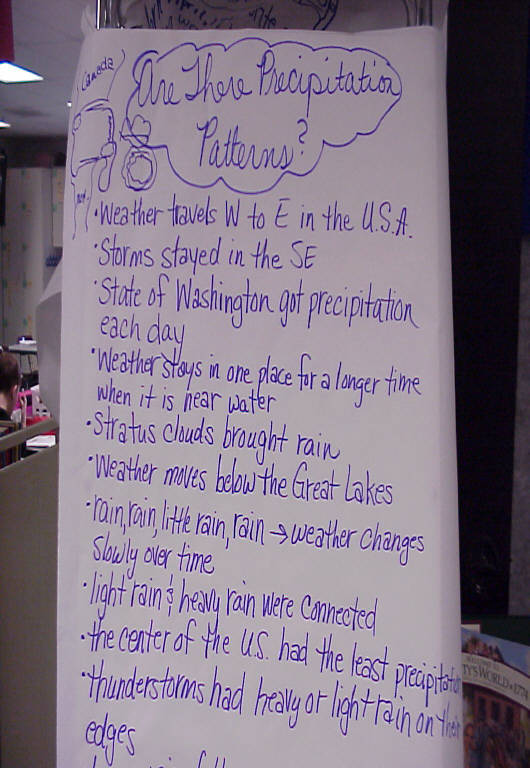 Canada
Are There Precipitation
Patterns?
• Weather travels W to E in the U.S.A.
• Storms stayed in the SE
• State of Washington got precipitation
each day
• Weather stays in one place for a longer time
when it is near water
• Stratus clouds brought rain
• Weather moves below the Great Lakes
• rain, rain, little rain, rain → weather changes
slowly over time
• light rain & heavy rain were connected
• the center of the U.S. had the least precipitation
• thunderstorms had heavy or light rain on their
edges